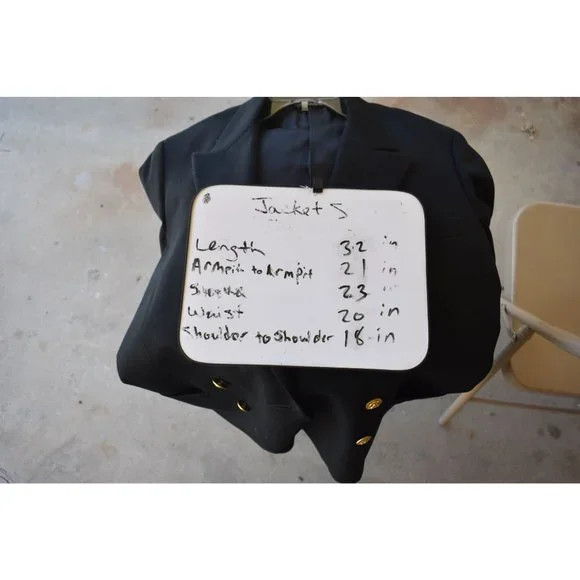 Jacket S
Length 32 in
Armpit to Armpit 21 in
23 in
Waist 20 in
Shoulder to Shoulder 18 in